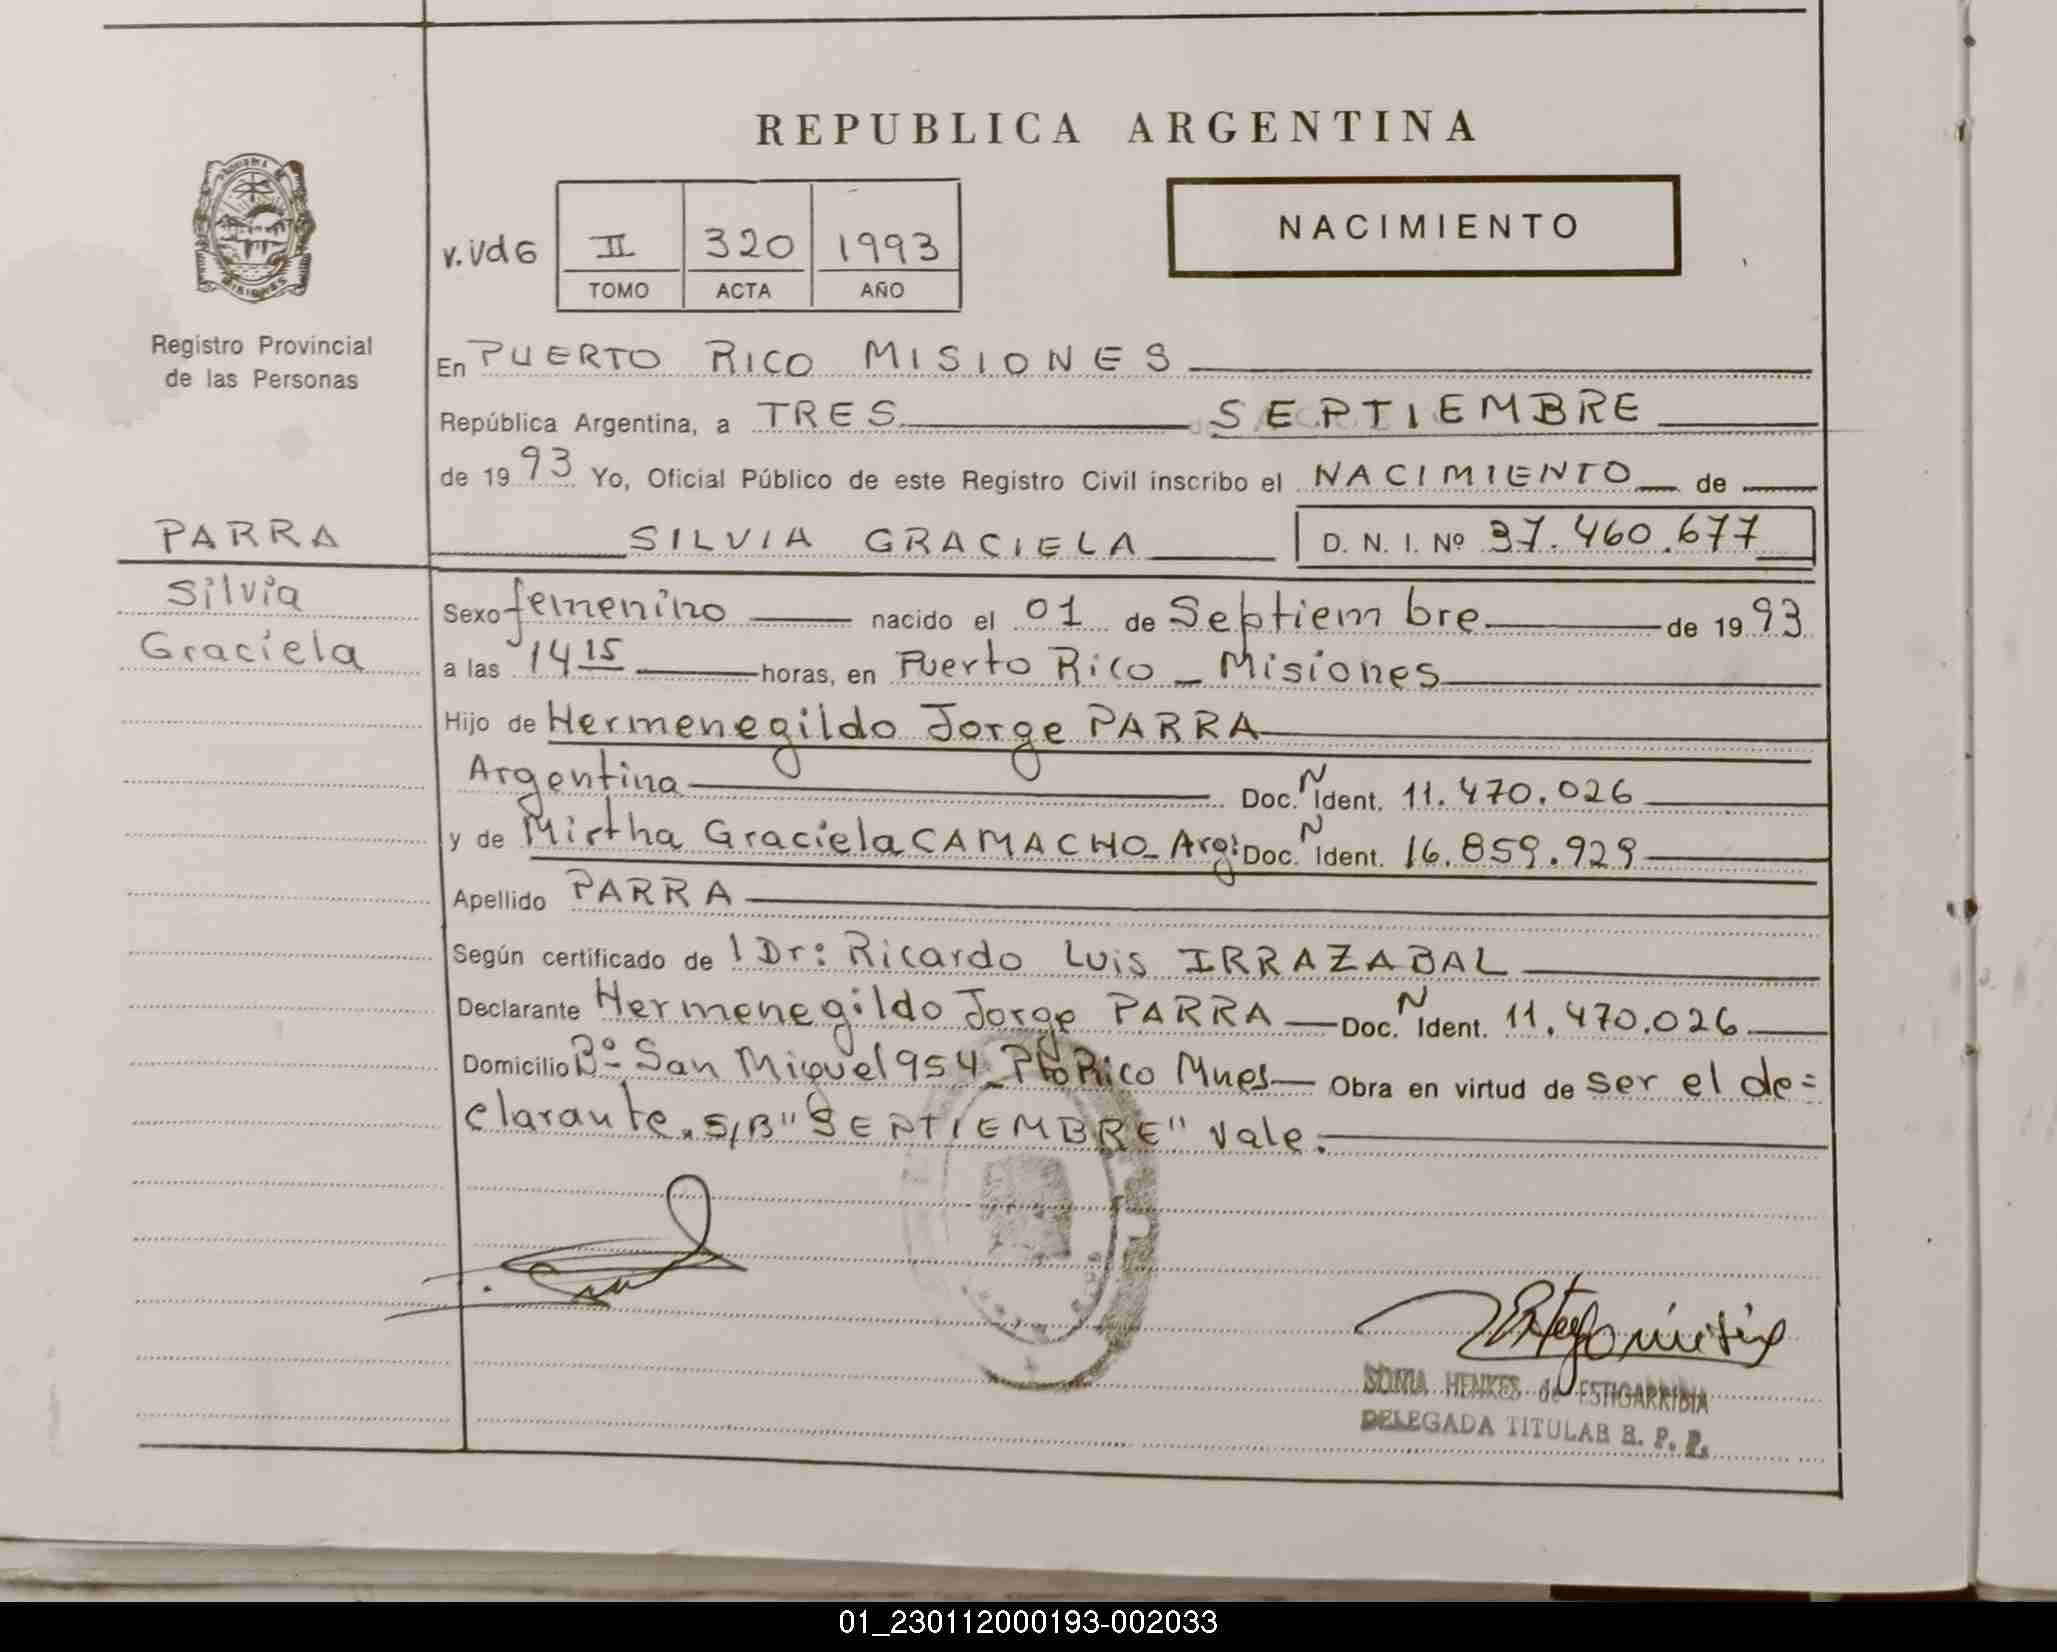 REPUBLICA ARGENTINA
NACIMIENTO
v.vd6 II 320 1993
TOMO ACTA AÑO
Registro Provincial
de las Personas
En PUERTO RICO MISIONES
República Argentina, a TRES SEPTIEMBRE
de 1993 Yo, Oficial Público de este Registro Civil inscribo el NACIMIENTO de
PARRA
SILVIA GRACIELA D. N. I. Nº 37.460.677
Silvia
Graciela
Sexo femenino nacido el 01 de Septiembre de 1993
a las 14 15 horas, en Puerto Rico _ Misiones
Hijo de Hermenegildo Jorge PARRA
Argentina Doc. N Ident. 11.470.026
y de Mirtha Graciela CAMACHO_ Arg: Doc. N Ident. 16.859.929
Apellido PARRA
Según certificado de l Dr: Ricardo Luis IRRAZABAL
Declarante Hermenegildo Jorge PARRA Doc. N Ident. 11.470.026
Domicilio Bº San Miguel 954_ Pto Rico Mnes Obra en virtud de ser el de=
clarante. S/B "SEPTIEMBRE" Vale.
SONIA HENKES de ESTIGARRIBIA
DELEGADA TITULAR R. P. P.
01_230112000193-002033